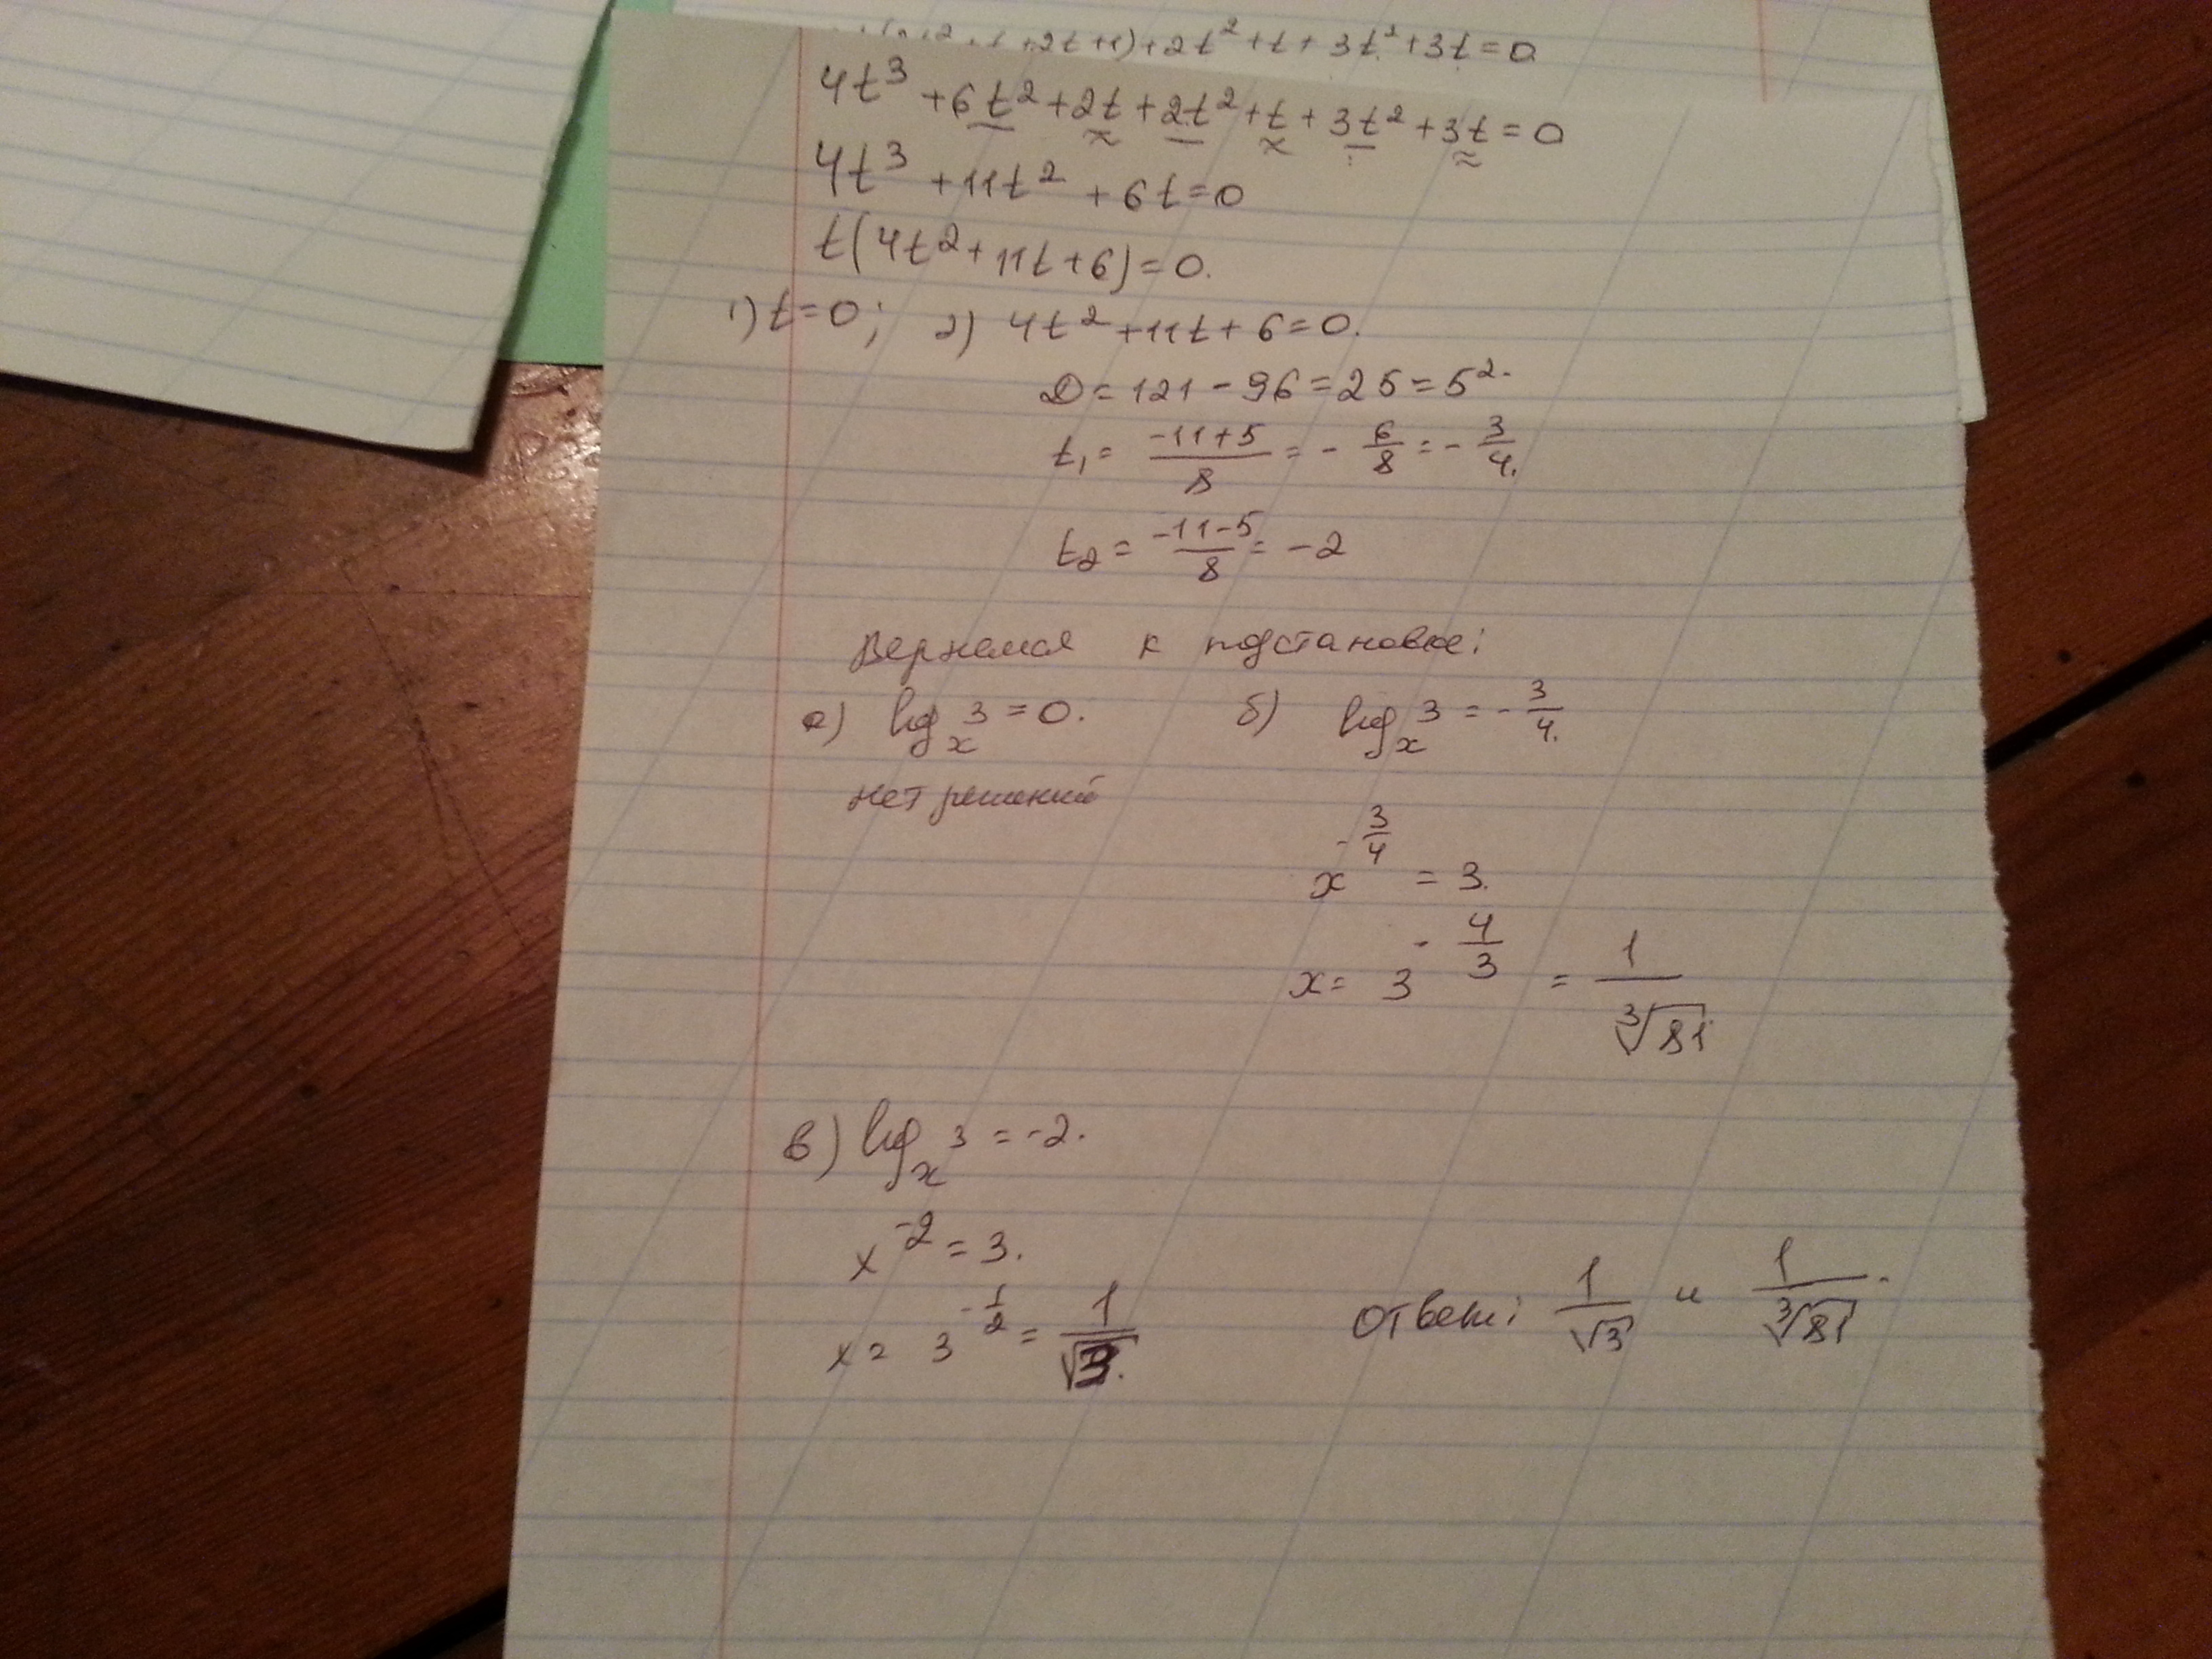 +2t+1)+2t²+t+3t²+3t=0
4t³+6t²+2t+2t²+t+3t²+3t=0
4t³+11t²+6t=0
t(4t²+11t+6)=0.
1) t=0; 2) 4t²+11t+6=0.
D=121-96=25=5².
t₁=(-11+5)/8=-6/8=-3/4.
t₂=(-11-5)/8=-2
Вернемся к подстановке:
а) logₓ3=0. б) logₓ3=-3/4.
нет решений
x^(-3/4)=3.
x=3^(-4/3)=1/∛81
в) logₓ3=-2.
x⁻²=3.
x=3^(-1/2)=1/√3.
Ответ: 1/√3 и 1/∛81.